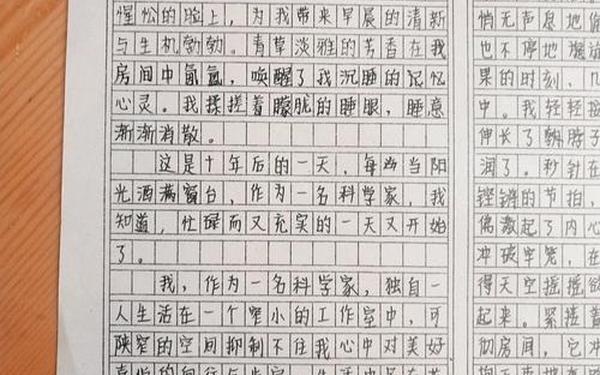 惺忪的脸上，为我带来早晨的清新
与生机勃勃。青草淡雅的芳香在我
房间中氤氲，唤醒了我沉睡的记忆
心灵。我揉搓着朦胧的睡眼，睡意
渐渐消散。
这是十年后的一天，每当当阳
光洒满窗台，作为一名科学家，我
知道，忙碌而又充实的一天又开始
了。
我，作为一名科学家，独自一
人生活在一个窄小的工作室中，可
狭窄的空间抑制不住我心中对美好
悄无声息地
也不停地
果的时刻，几
中。我轻轻
伸长了脖子
润了。秒针在
铿锵的节拍，
起了内心
冲破牢笼，在
得天空摇摇欲
起来。紧接着
彻房间，它冲